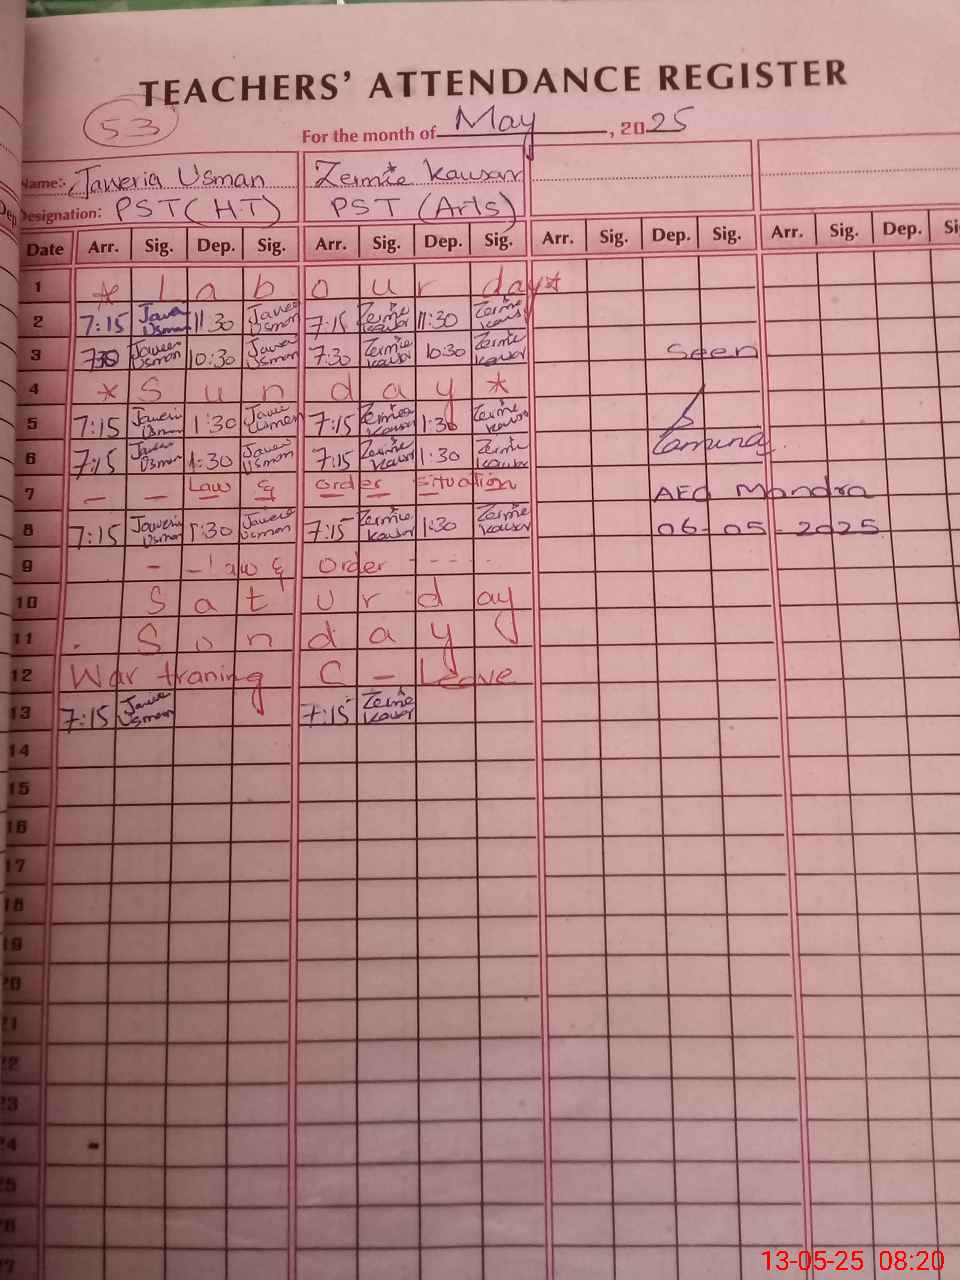 TEACHERS' ATTENDANCE REGISTER
53
For the month of May, 2025
Name: Jaweria Usman Zermie Kausar
Designation: PST (H.T) PST (Arts)
Date Arr. Sig. Dep. Sig. Arr. Sig. Dep. Sig. Arr. Sig. Dep. Sig. Arr. Sig. Dep.
1 * labour day *
2 7:15 Usman 11:30 Usman 7:15 Zermie Kausar 11:30 Zermie
3 7:30 Usman 10:30 Usman 7:30 Zermie Kausar 10:30 Zermie Kausar Seen
4 * Sunday *
5 7:15 Jaweri Usman 1:30 Usman 7:15 Zermie Kausar 1:30 Zermie Kausar
6 7:15 Usman 1:30 Usman 7:15 Zermie Kausar 1:30 Zermie Kausar
7 - - Law & order situation AEO Mandra
8 7:15 Jaweri Usman 1:30 Jaweri Usman 7:15 Zermie Kausar 1:30 Zermie Kausar 06-05-2025
9 - - law & order - - -
10 Saturday
11 Sunday
12 War traning C - Leave
13 7:15 Usman 7:15 Zermie Kausar
14
15
16
17
18
19
20
21
22
23
24 -
25
26
27
13-05-25 08:20